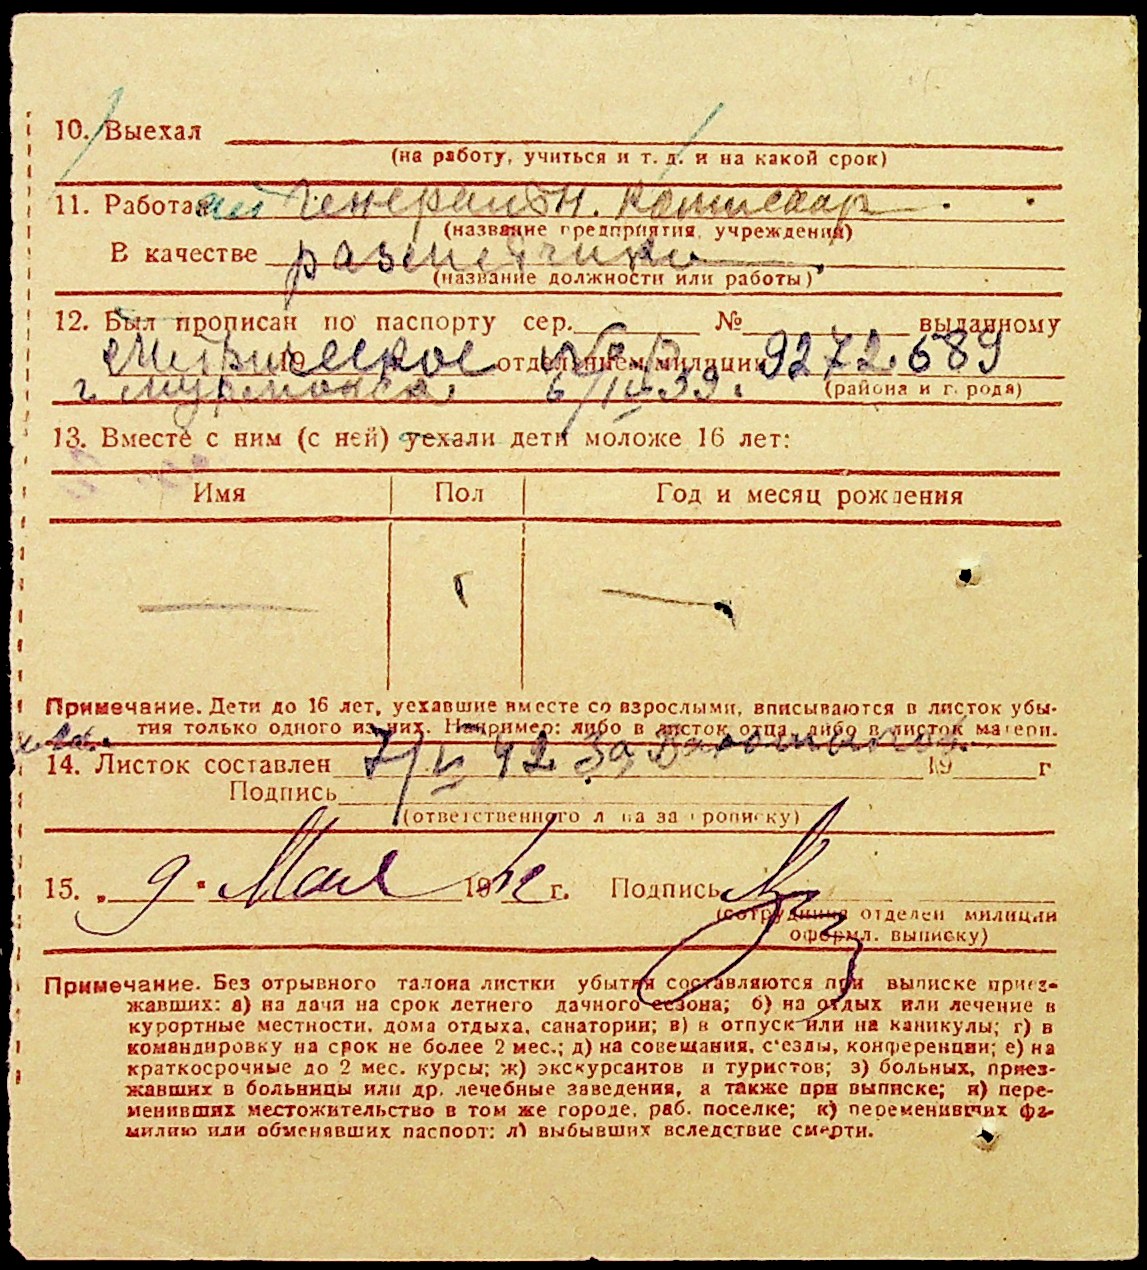 10. Выехал
(на работу, учиться и т. д. и на какой срок)
11. Работа
(название предприятия, учреждения)
В качестве
(название должности или работы)
12. Был прописан по паспорту сер. № выданному
19 отделением милиции 9272689
г. Мурманска 6/IV 39. (района и г. рода)
13. Вместе с ним (с ней) уехали дети моложе 16 лет:
Имя Пол Год и месяц рождения
Примечание. Дети до 16 лет, уехавшие вместе со взрослыми, вписываются в листок убы-
тия только одного из них. Например: либо в листок отца, либо в листок матери.
14. Листок составлен 7/V 42 19 г
Подпись
(ответственного лица за прописку)
15. „ 9 " Мая 1942 г. Подпись
(сотрудника отделен милиции
оформл. выписку)
Примечание. Без отрывного талона листки убытия составляются при выписке приез-
жавших: а) на дачи на срок летнего дачного сезона; б) на отдых или лечение в
курортные местности, дома отдыха, санатории; в) в отпуск или на каникулы; г) в
командировку на срок не более 2 мес.; д) на совещания, с'езды, конференции; е) на
краткосрочные до 2 мес. курсы; ж) экскурсантов и туристов; з) больных, приез-
жавших в больницы или др. лечебные заведения, а также при выписке; и) пере-
менивших местожительство в том же городе, раб. поселке; к) переменивших фа-
милию или обменявших паспорт; л) выбывших вследствие смерти.